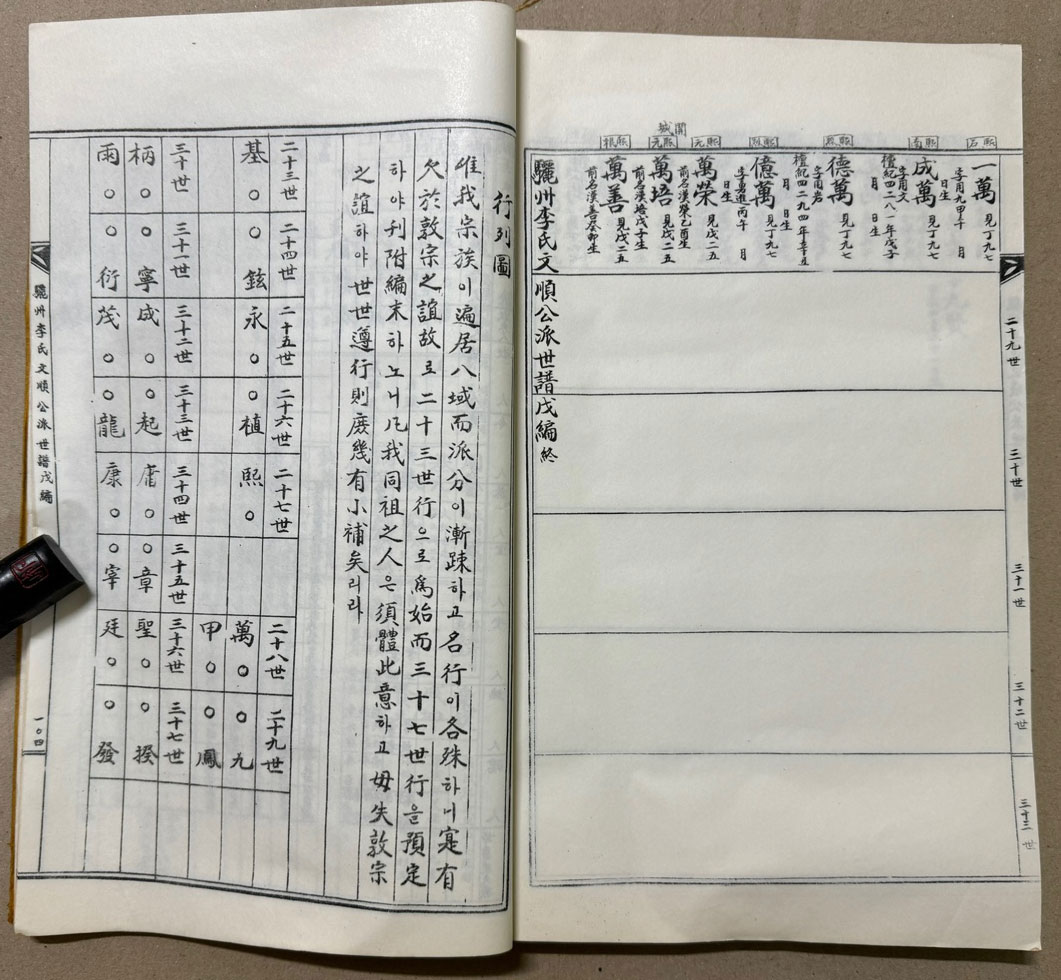 二十九世 三十世 三十一世 三十二世 三十三世
熙石
一萬 見丁九七
字用九甲午 月
日生
成萬 見丁九七
字用文
檀紀四二八一年戊子
月 日生
德萬 見丁九七
字用岩
檀紀四二九四年辛丑
月 日生
億萬 見丁九七
字勇進丙午 月
日生
熙元
萬榮 見戊二五
前名漢榮乙酉生
開城
熙元
萬培 見戊二五
前名漢培戊子生
熙根
萬善 見戊二五
前名漢善癸卯生
驪州李氏文順公派世譜戊編 終
行列圖
惟我宗族이遍居八域而派分이漸踈하고名行이各殊하니寔有
欠於敦宗之誼故로二十三世行으로爲始而三十七世行을預定
하야刋附編末하노니凡我同祖之人은須體此意하고毋失敦宗
之誼하야世世遵行則庶幾有小補矣리라
二十三世 二十四世 二十五世 二十六世 二十七世 二十八世 二十九世
基○ ○鉉 永○ ○植 熙○ 萬○ ○九
甲○ ○鳳
三十世 三十一世 三十二世 三十三世 三十四世 三十五世 三十六世 三十七世
柄○ ○寧 成○ ○起 庸○ ○章 聖○ ○揆
雨○ ○衍 茂○ ○龍 康○ ○宰 廷○ ○發
驪州李氏文順公派世譜戊編
一○四